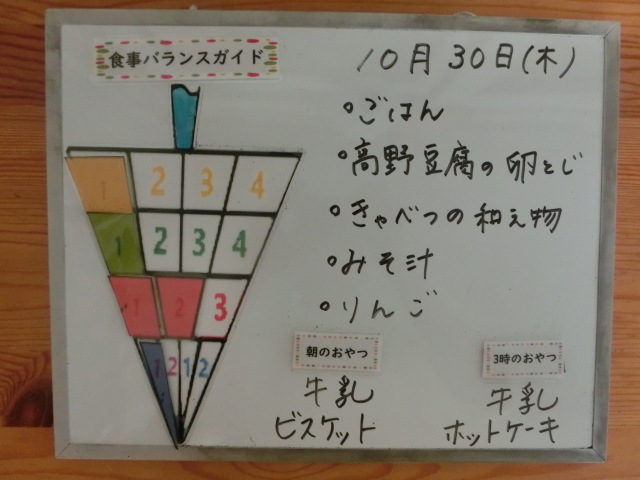 食事バランスガイド
10月30日(木)
・ごはん
・高野豆腐の卵とじ
・きゃべつの和え物
・みそ汁
・りんご
1 2 3 4
1 2 3 4
1 2 3
1 2 1 2
朝のおやつ
牛乳
ビスケット
3時のおやつ
牛乳
ホットケーキ